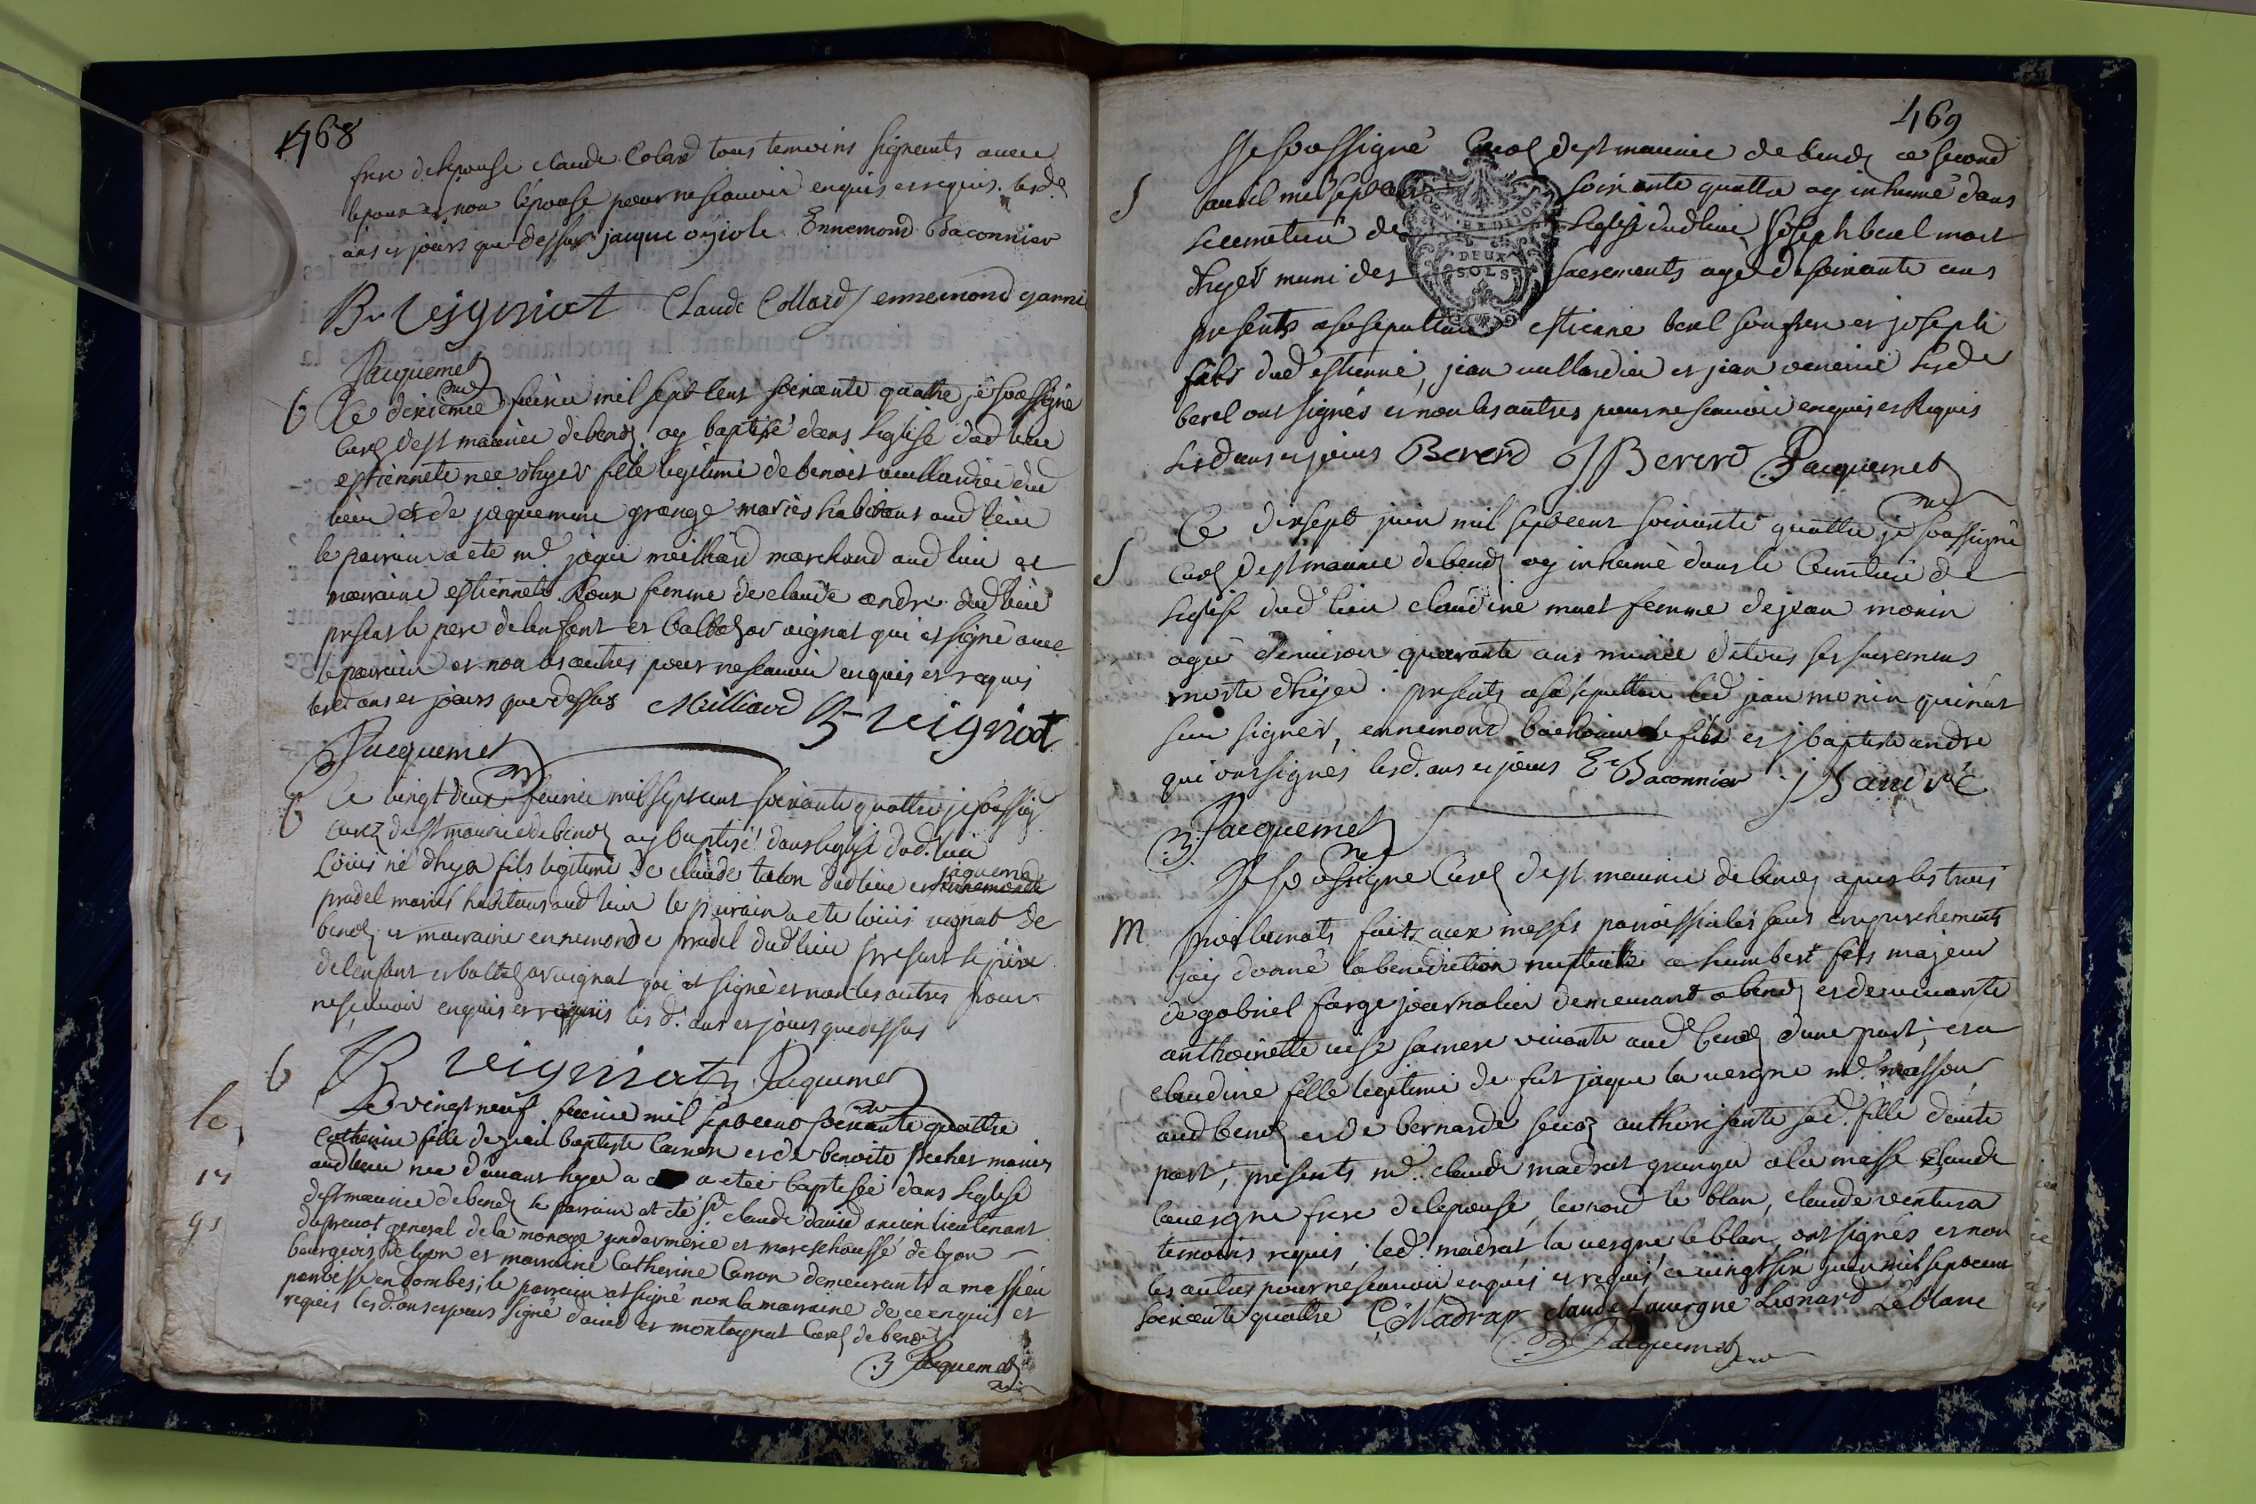 468
frere de lepouse claude Colard tous temoins signants avec
lepoux et non lépouse pour ne scavoir enquis et requis. lesd.
ans et jours que dessus jacque ogiole Ennemond Baconnier
Br Veigniat Claude Collard ennemond
Jacquemet
b
Ce dixieme feuvrier mil sept cent soixante quatre je soussigné
Curé de st maurice de benoz ay baptisé dans leglise dud lieu
estiennete née d'hyer fille legitime de benoit vuillardier dud
lieu et de jaquemine grange mariés habitant aud lieu
le parrain a ete md. jaque meilliard marchand aud lieu et
marraine estiennete femme de claude andre dud lieu
present le pere de lenfant et baltazar vignat qui at signé avec
le parrain et non les autres pour ne scavoir enquis et requis
lesd ans et jours que dessus Milliard B Veigniat
Jacquemet
b
Ce vingt deux feuvrie mil sept cent soixante quattre je soussig.
Curé de st maurice de benoz ay baptisé dans leglise dud. lieu
Loüis né d'hyer fils legitime de claude talon dud lieu et jaqueme
pradel mariés habitans aud lieu le parrain a ete loüis vignat de
benoz et marraine ennemonde pradel dud lieu present le père
de lenfant et baltazar vignat qui at signé et non les autres pour
ne scavoir enquis et requis les d. ans et jours que dessus
B Veigniat Jacquemet
b
Le vingt neuf feuvrie mil sept cent soixante quattre
Catherine fille de jean baptiste Canon et de benoite pecher mariés
aud lieu nee d'avant hyer a a etée baptisée dans leglise
de st maurice de benoz le parrain at été sr. claude david ancien lieutenant
du prevot general de la monoye gendarmerie et mareschoussé de lyon
bourgeois de lyon et marraine Catherine Canon demeurante a massieu
paroisse en dombes; le parrain at signé non la marraine de ce enquis et
requis lesd. ans et jours signé david et montagnat Curé de benoz
Jacquemet
469
S
Je soussigné Curé de st maurice de benoz ce second
avril mil sept cent soixante quattre ay inhumé dans
le cemetiere de leglise dud lieu, Joseph berel mort
d'hyer muni des sacrements agé de soixante ans
presents a sa sepulture estienne berel son frere et joseph
fils dud estienne, jean vullardier et jean lesd.
berel ont signés et non les autres pour ne scavoir enquis et Requis
lesd ans et jours Bererd J Bererd Jacquemet
GEN·ERE DIJON
DEUX
SOLS
S
Ce dixsept juin mil sept cent soixante quattre je soussigné
Curé de st maurice de benoz ay inhumé dans le Cemetiere de
leglise dud lieu claudine muet femme de jean monin
agée denviron quarante ans munie de tous ses sacremens
morte d'hyer. presents a sa sepulture led jean monin qui n'at
sceu signer, ennemond baconnier le fils et j baptiste andre
qui ont signés lesd. ans et jours Er Baconnier J B andré
Jacquemet
M
Je soussigné Curé de st maurice de benoz apres les trois
proclamats faits aux messes paroissiales sans empeschements
j'ais donné la benediction nuptialle a humbert fils majeur
de gabriel farge journalier demeurant a benoz et de vivante
anthoinette sa mere vivante aud benoz d'une part; et a
claudine fille legitime de fut jaque la vergne md. masson
aud benoz et de bernarde authorisante sad. fille d'autre
part, presents md. claude madrat granger a la masse Claude
lavergne frere de lepouse, leonord le blan, claude ventura
temoins requis, led. madrat la vergne le blan, ont signés et non
les autres pour ne scavoir enquis et requis ce vingt six juin mil sept cent
soixante quattre C Madrat claude Lavergne Leonard Le blanc
Jacquemet